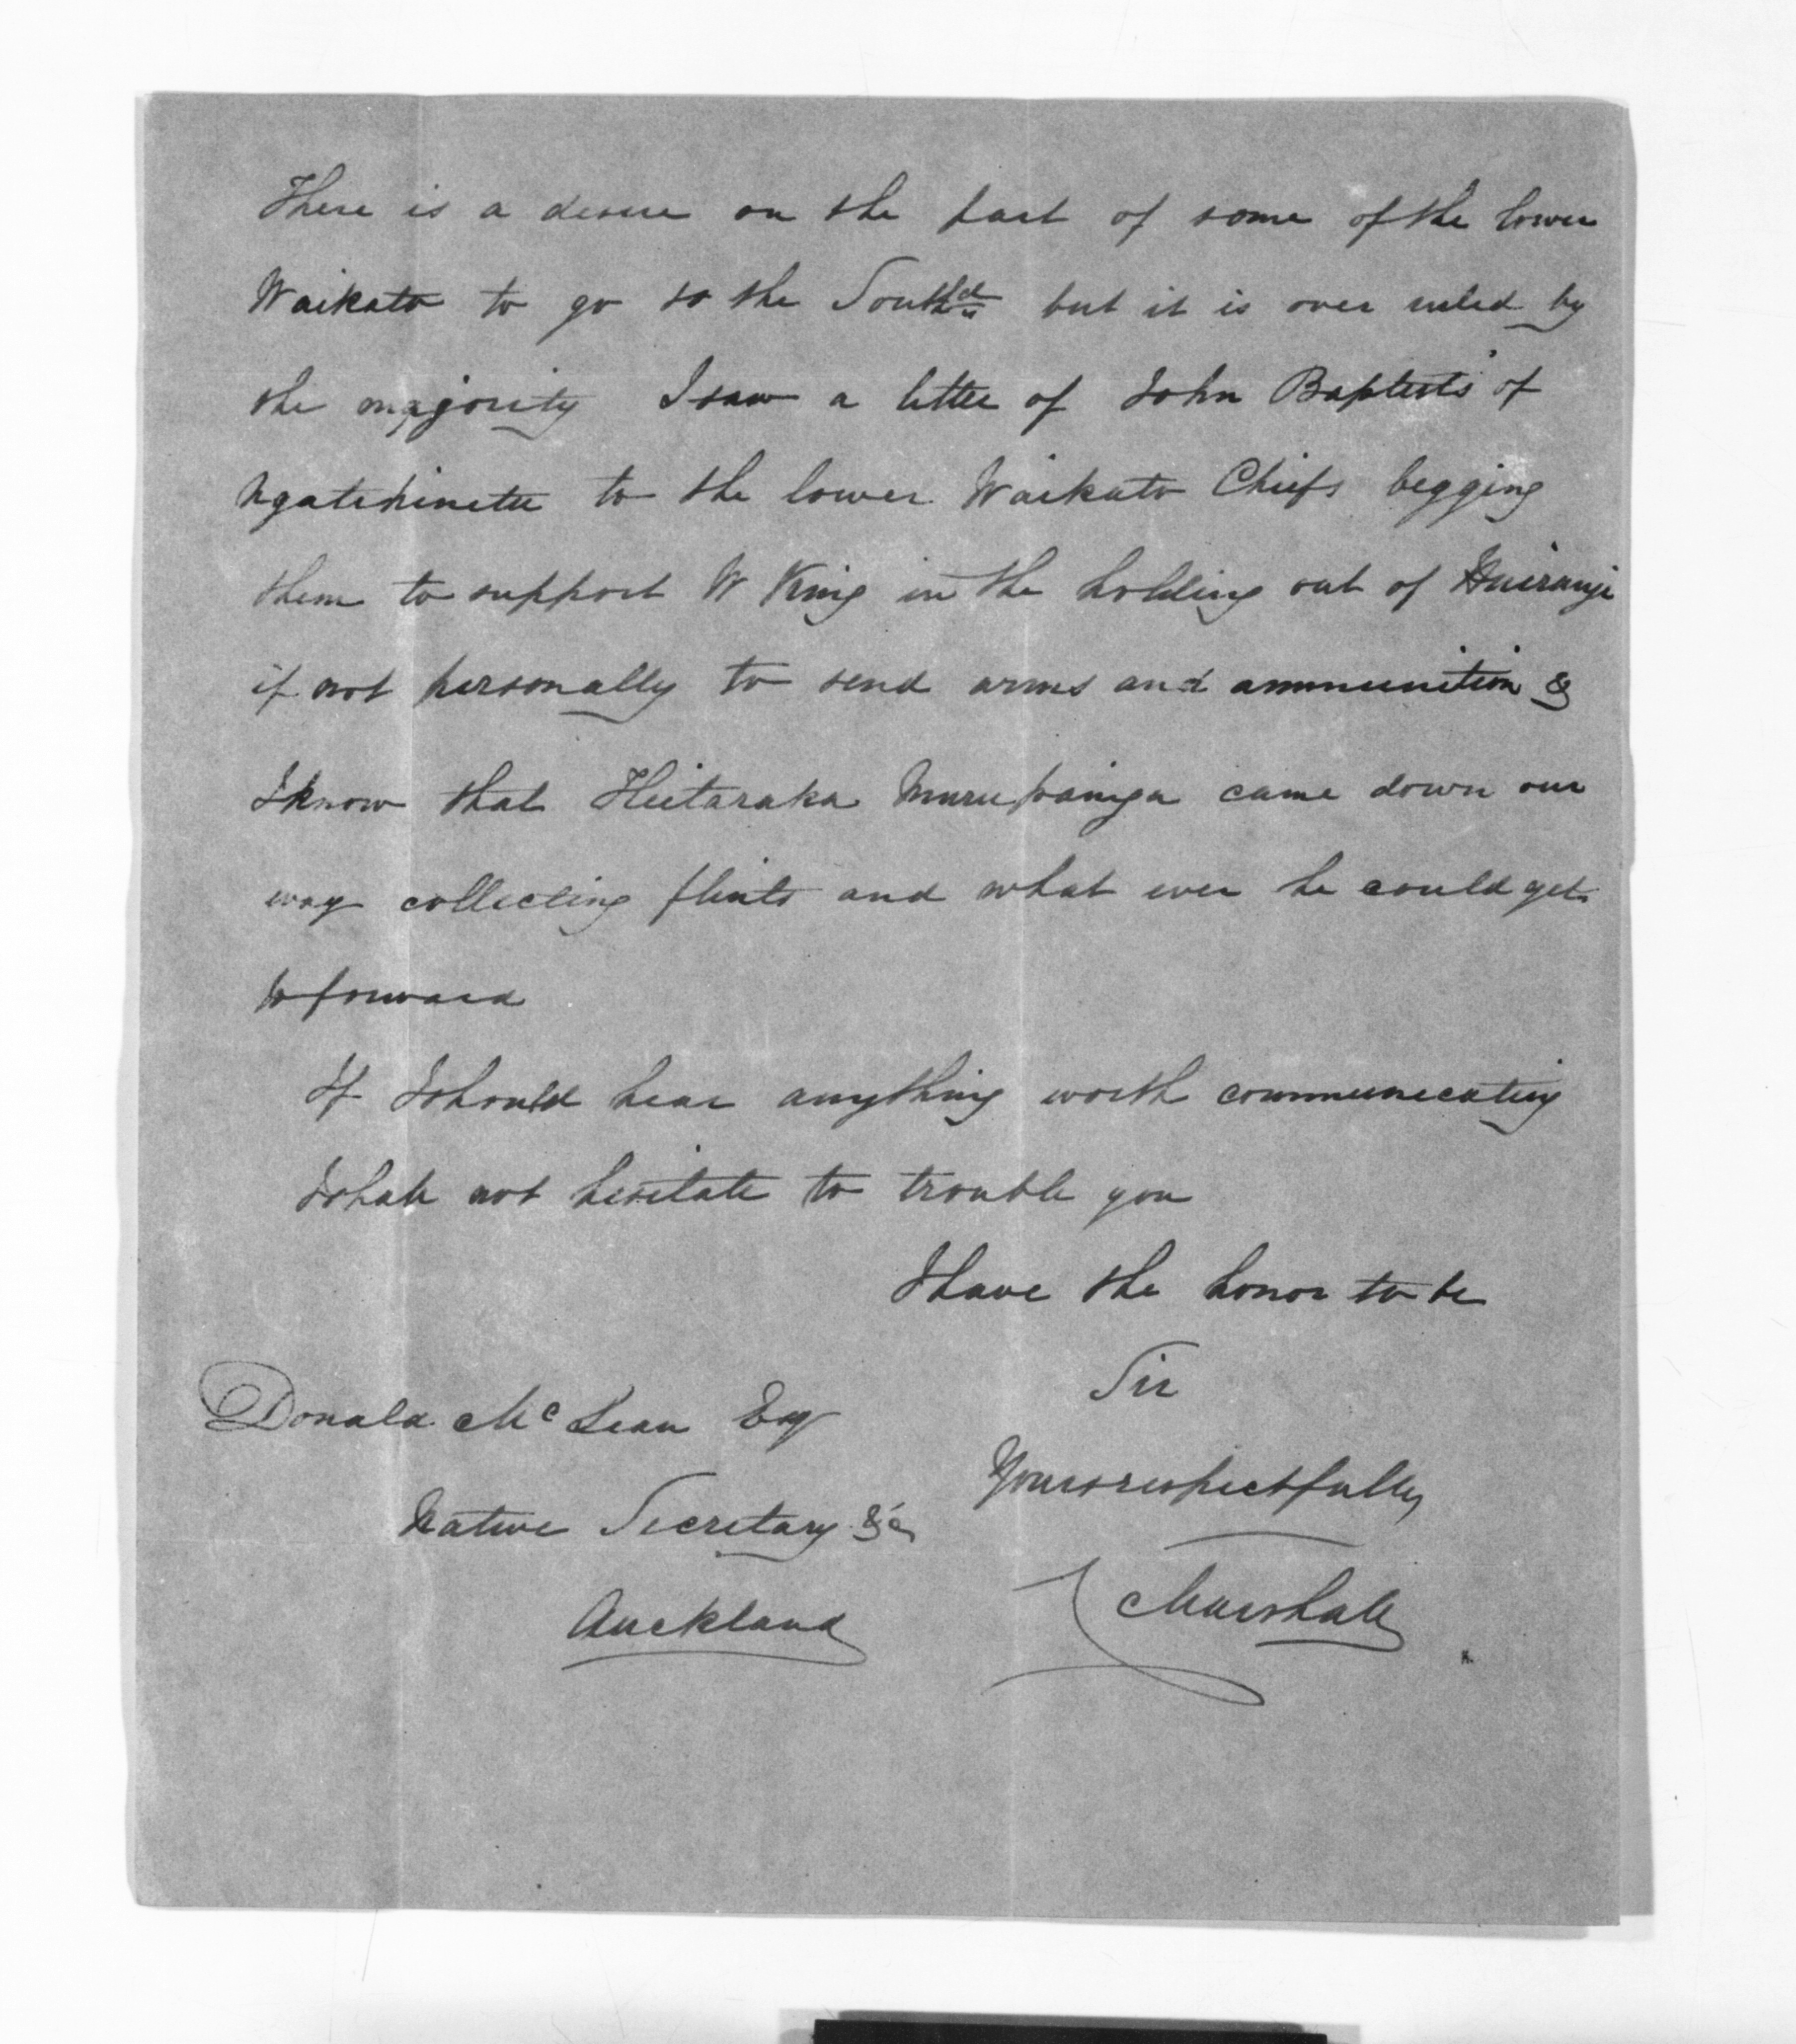 There is a desire on the part of some of the lower
Waikato to go to the Southd but it is over ruled by
the majority I saw a letter of John Baptists' of
Ngatihinetu to the lower Waikato Chiefs begging
them to support W King in the holding out of Huirangi
if not personally to send arms and ammunition &
I know that Hetaraka Murupainga came down our
way collecting flints and what ever he could get
to forward
If I should hear anything worth communicating
I shall not hesitate to trouble you
I have the honor to be
Sir
Donald McLean Esq
Yours respectfully
Native Secretary &c
Marshall
Auckland